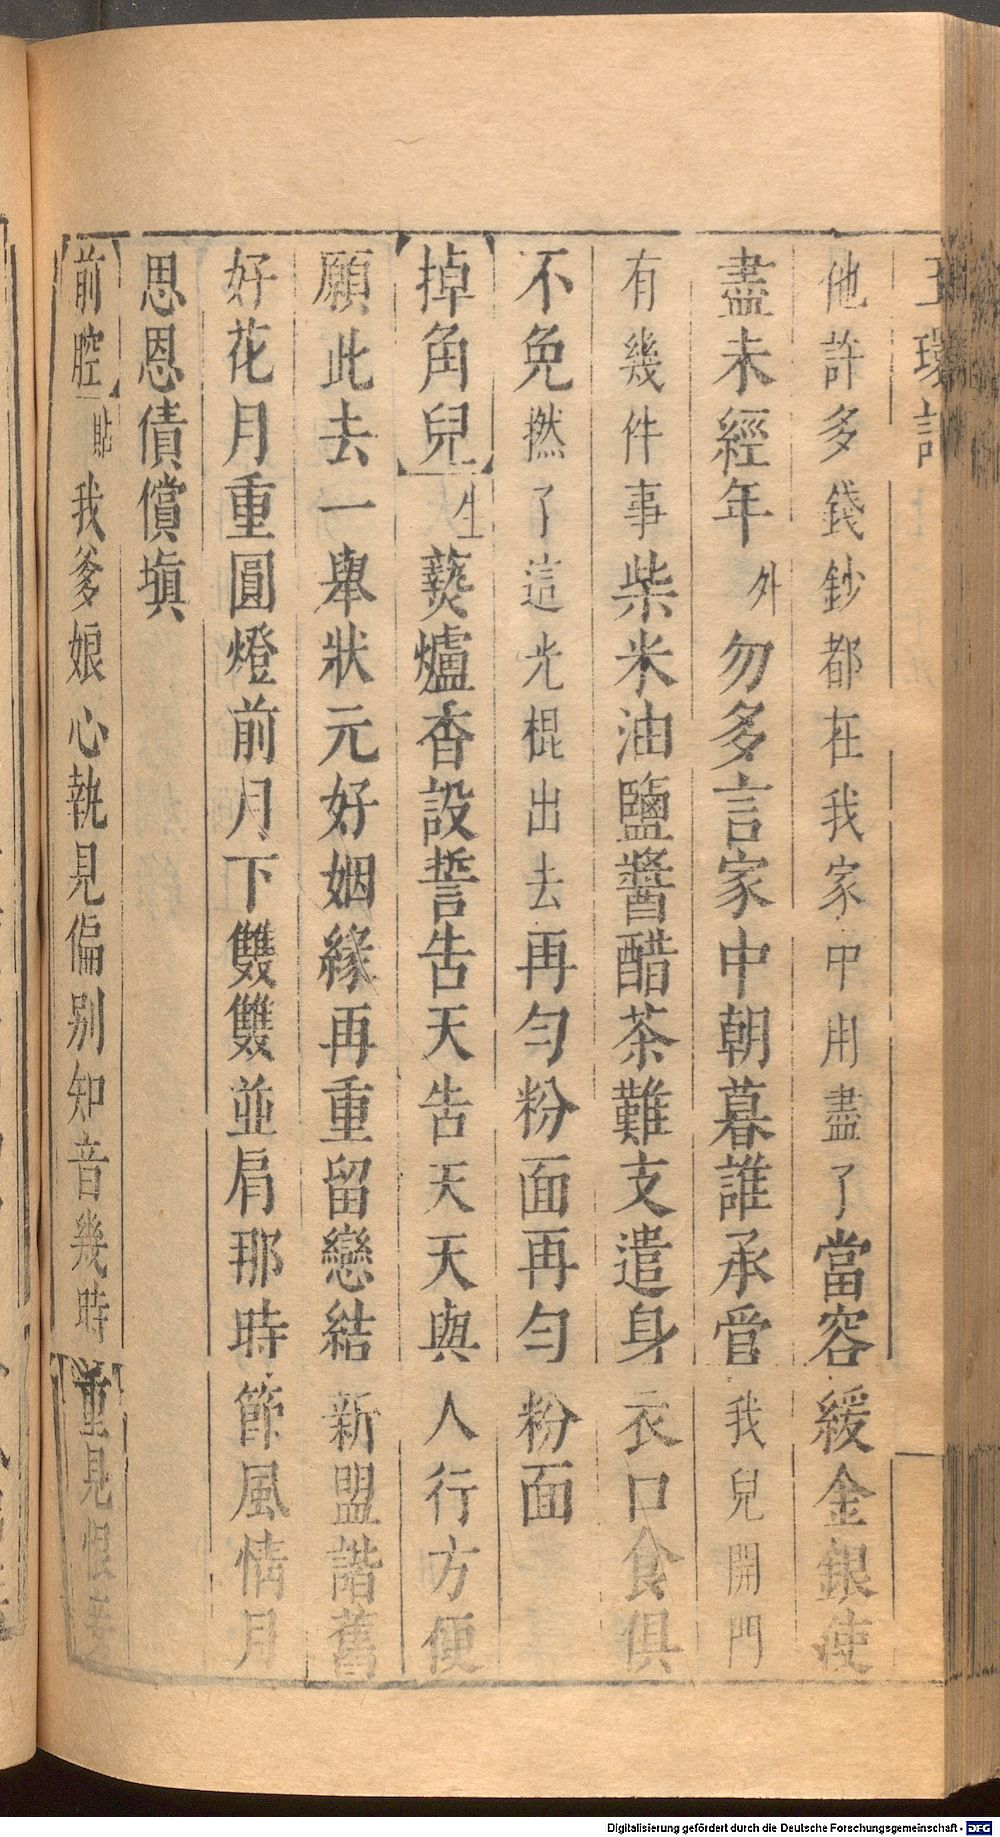 玉環記
他許多錢鈔都在我家中用盡了當容緩金銀使
盡未經年外勿多言家中朝暮誰承管我兒開門
有幾件事柴米油鹽醬醋茶難支遣身衣口食俱
不免撚了這光棍出去再勻粉面再勻粉面
掉角兒生爇爐香設誓告天告天天與人行方便
願此去一舉狀元好姻緣再重留戀結新盟諧舊
好花月重圓燈前月下雙雙並肩那時節風情月
思恩債償塡
前腔貼我爹娘心執見偏別知音幾時重見恨妾
Digitalisierung gefördert durch die Deutsche Forschungsgemeinschaft - DFG